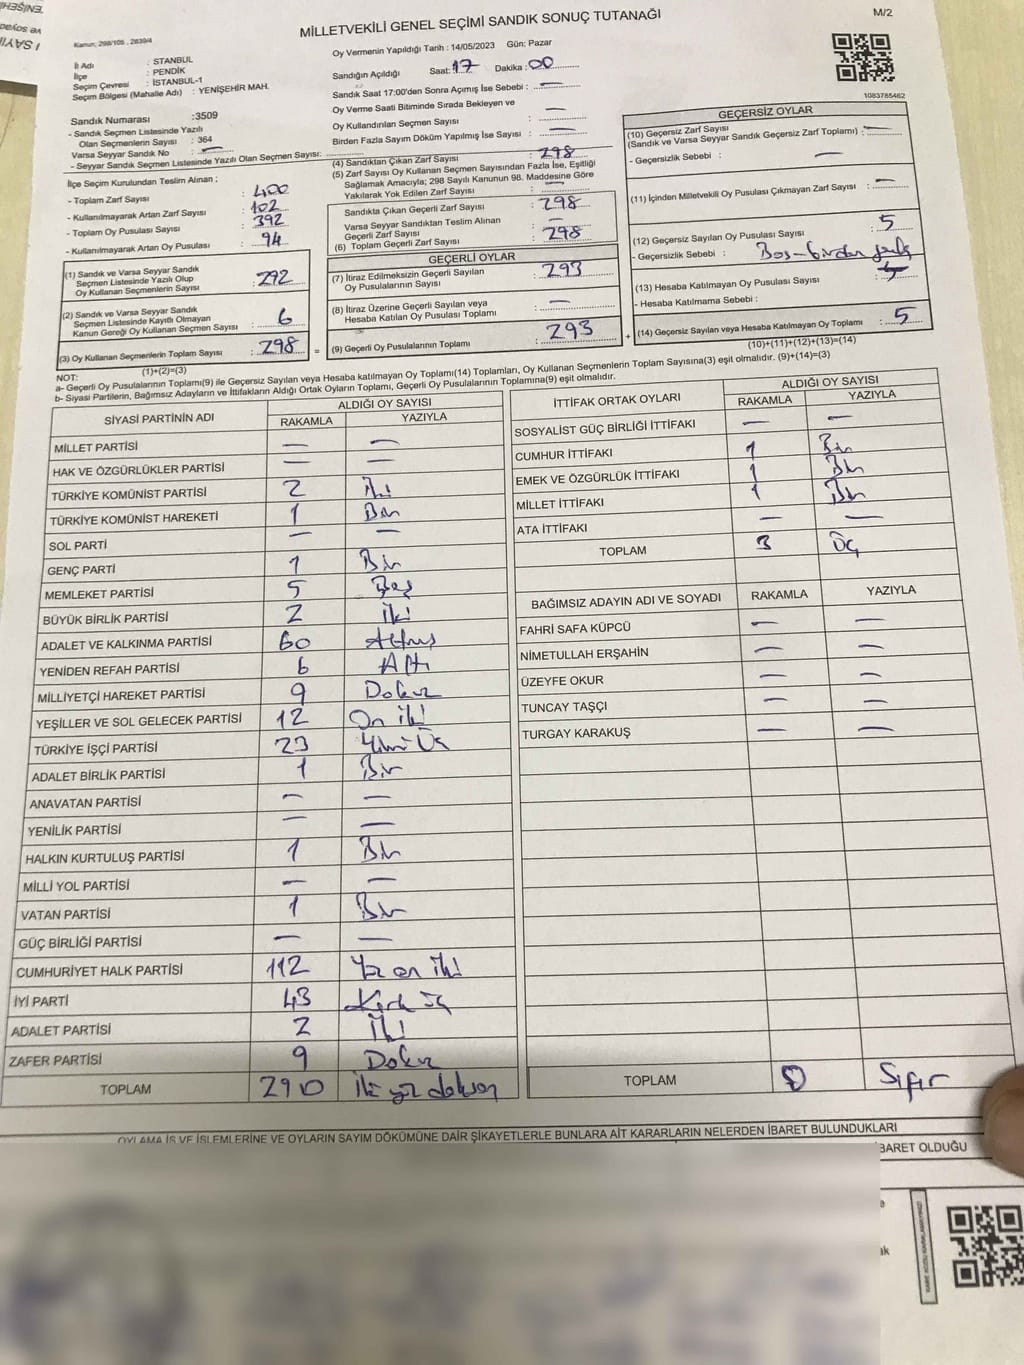 MİLLETVEKİLİ GENEL SEÇİMİ SANDIK SONUÇ TUTANAĞI
M/2
Kanun; 298/105 , 2839/4
Oy Vermenin Yapıldığı Tarih : 14/05/2023 Gün: Pazar
İl Adı : STANBUL
İlçe : PENDİK
Seçim Çevresi : İSTANBUL-1
Seçim Bölgesi (Mahalle Adı) : YENİŞEHİR MAH.
Sandık Numarası :3509
- Sandık Seçmen Listesinde Yazılı
Olan Seçmenlerin Sayısı : 364
Varsa Seyyar Sandık No : —
- Seyyar Sandık Seçmen Listesinde Yazılı Olan Seçmen Sayısı:
Sandığın Açıldığı Saat: 17 Dakika : 00
Sandık Saat 17:00'den Sonra Açımış İse Sebebi : —
Oy Verme Saati Bitiminde Sırada Bekleyen ve
Oy Kullandırılan Seçmen Sayısı : —
Birden Fazla Sayım Döküm Yapılmış İse Sayısı : —
1083785462
İlçe Seçim Kurulundan Teslim Alınan ;
- Toplam Zarf Sayısı : 400
- Kullanılmayarak Artan Zarf Sayısı : 102
- Toplam Oy Pusulası Sayısı : 392
- Kullanılmayarak Artan Oy Pusulası : 94
(1) Sandık ve Varsa Seyyar Sandık
Seçmen Listesinde Yazılı Olup
Oy Kullanan Seçmenlerin Sayısı : 292
(2) Sandık ve Varsa Seyyar Sandık
Seçmen Listesinde Kayıtlı Olmayan
Kanun Gereği Oy Kullanan Seçmen Sayısı : 6
(3) Oy Kullanan Seçmenlerin Toplam Sayısı : 298
(1)+(2)=(3)
(4) Sandıktan Çıkan Zarf Sayısı : 298
(5) Zarf Sayısı Oy Kullanan Seçmen Sayısından Fazla İse, Eşitliği
Sağlamak Amacıyla; 298 Sayılı Kanunun 98. Maddesine Göre
Yakılarak Yok Edilen Zarf Sayısı : —
Sandıkta Çıkan Geçerli Zarf Sayısı : 298
Varsa Seyyar Sandıktan Teslim Alınan
Geçerli Zarf Sayısı : —
(6) Toplam Geçerli Zarf Sayısı : 298
GEÇERLİ OYLAR
(7) İtiraz Edilmeksizin Geçerli Sayılan
Oy Pusulalarının Sayısı : 293
(8) İtiraz Üzerine Geçerli Sayılan veya
Hesaba Katılan Oy Pusulası Toplamı : —
= (9) Geçerli Oy Pusulalarının Toplamı : 293 +
GEÇERSİZ OYLAR
(10) Geçersiz Zarf Sayısı
(Sandık ve Varsa Seyyar Sandık Geçersiz Zarf Toplamı) : —
- Geçersizlik Sebebi : —
(11) İçinden Milletvekili Oy Pusulası Çıkmayan Zarf Sayısı : —
(12) Geçersiz Sayılan Oy Pusulası Sayısı : 5
- Geçersizlik Sebebi : Boş - birden
(13) Hesaba Katılmayan Oy Pusulası Sayısı :
- Hesaba Katılmama Sebebi :
(14) Geçersiz Sayılan veya Hesaba Katılmayan Oy Toplamı : 5
(10)+(11)+(12)+(13)=(14)
NOT:
a- Geçerli Oy Pusulalarının Toplamı(9) ile Geçersiz Sayılan veya Hesaba Katılmayan Oy Toplamı(14) Toplamları, Oy Kullanan Seçmenlerin Toplam Sayısına(3) eşit olmalıdır. (9)+(14)=(3)
b- Siyasi Partilerin, Bağımsız Adayların ve İttifakların Aldığı Ortak Oyların Toplamı, Geçerli Oy Pusulalarının Toplamına(9) eşit olmalıdır.
SİYASİ PARTİNİN ADI ALDIĞI OY SAYISI
RAKAMLA YAZIYLA
MİLLET PARTİSİ — —
HAK VE ÖZGÜRLÜKLER PARTİSİ — —
TÜRKİYE KOMÜNİST PARTİSİ 2 İki
TÜRKİYE KOMÜNİST HAREKETİ 1 Bir
SOL PARTİ — —
GENÇ PARTİ 1 Bir
MEMLEKET PARTİSİ 5 Beş
BÜYÜK BİRLİK PARTİSİ 2 İki
ADALET VE KALKINMA PARTİSİ 60 Altmış
YENİDEN REFAH PARTİSİ 6 Altı
MİLLİYETÇİ HAREKET PARTİSİ 9 Dokuz
YEŞİLLER VE SOL GELECEK PARTİSİ 12 On iki
TÜRKİYE İŞÇİ PARTİSİ 23 Yirmi Üç
ADALET BİRLİK PARTİSİ 1 Bir
ANAVATAN PARTİSİ — —
YENİLİK PARTİSİ — —
HALKIN KURTULUŞ PARTİSİ 1 Bir
MİLLİ YOL PARTİSİ — —
VATAN PARTİSİ 1 Bir
GÜÇ BİRLİĞİ PARTİSİ — —
CUMHURİYET HALK PARTİSİ 112 Yüz on iki
İYİ PARTİ 43 Kırk üç
ADALET PARTİSİ 2 İki
ZAFER PARTİSİ 9 Dokuz
TOPLAM 290 İki yüz doksan
İTTİFAK ORTAK OYLARI ALDIĞI OY SAYISI
RAKAMLA YAZIYLA
SOSYALİST GÜÇ BİRLİĞİ İTTİFAKI — —
CUMHUR İTTİFAKI 1 Bir
EMEK VE ÖZGÜRLÜK İTTİFAKI 1 Bir
MİLLET İTTİFAKI 1 Bir
ATA İTTİFAKI — —
TOPLAM 3 Üç
BAĞIMSIZ ADAYIN ADI VE SOYADI RAKAMLA YAZIYLA
FAHRİ SAFA KÜPCÜ — —
NİMETULLAH ERŞAHİN — —
ÜZEYFE OKUR — —
TUNCAY TAŞÇI — —
TURGAY KARAKUŞ — —
TOPLAM 0 Sıfır
OYLAMA İŞ VE İŞLEMLERİNE VE OYLARIN SAYIM DÖKÜMÜNE DAİR ŞİKAYETLERLE BUNLARA AİT KARARLARIN NELERDEN İBARET BULUNDUKLARI
BARET OLDUĞU